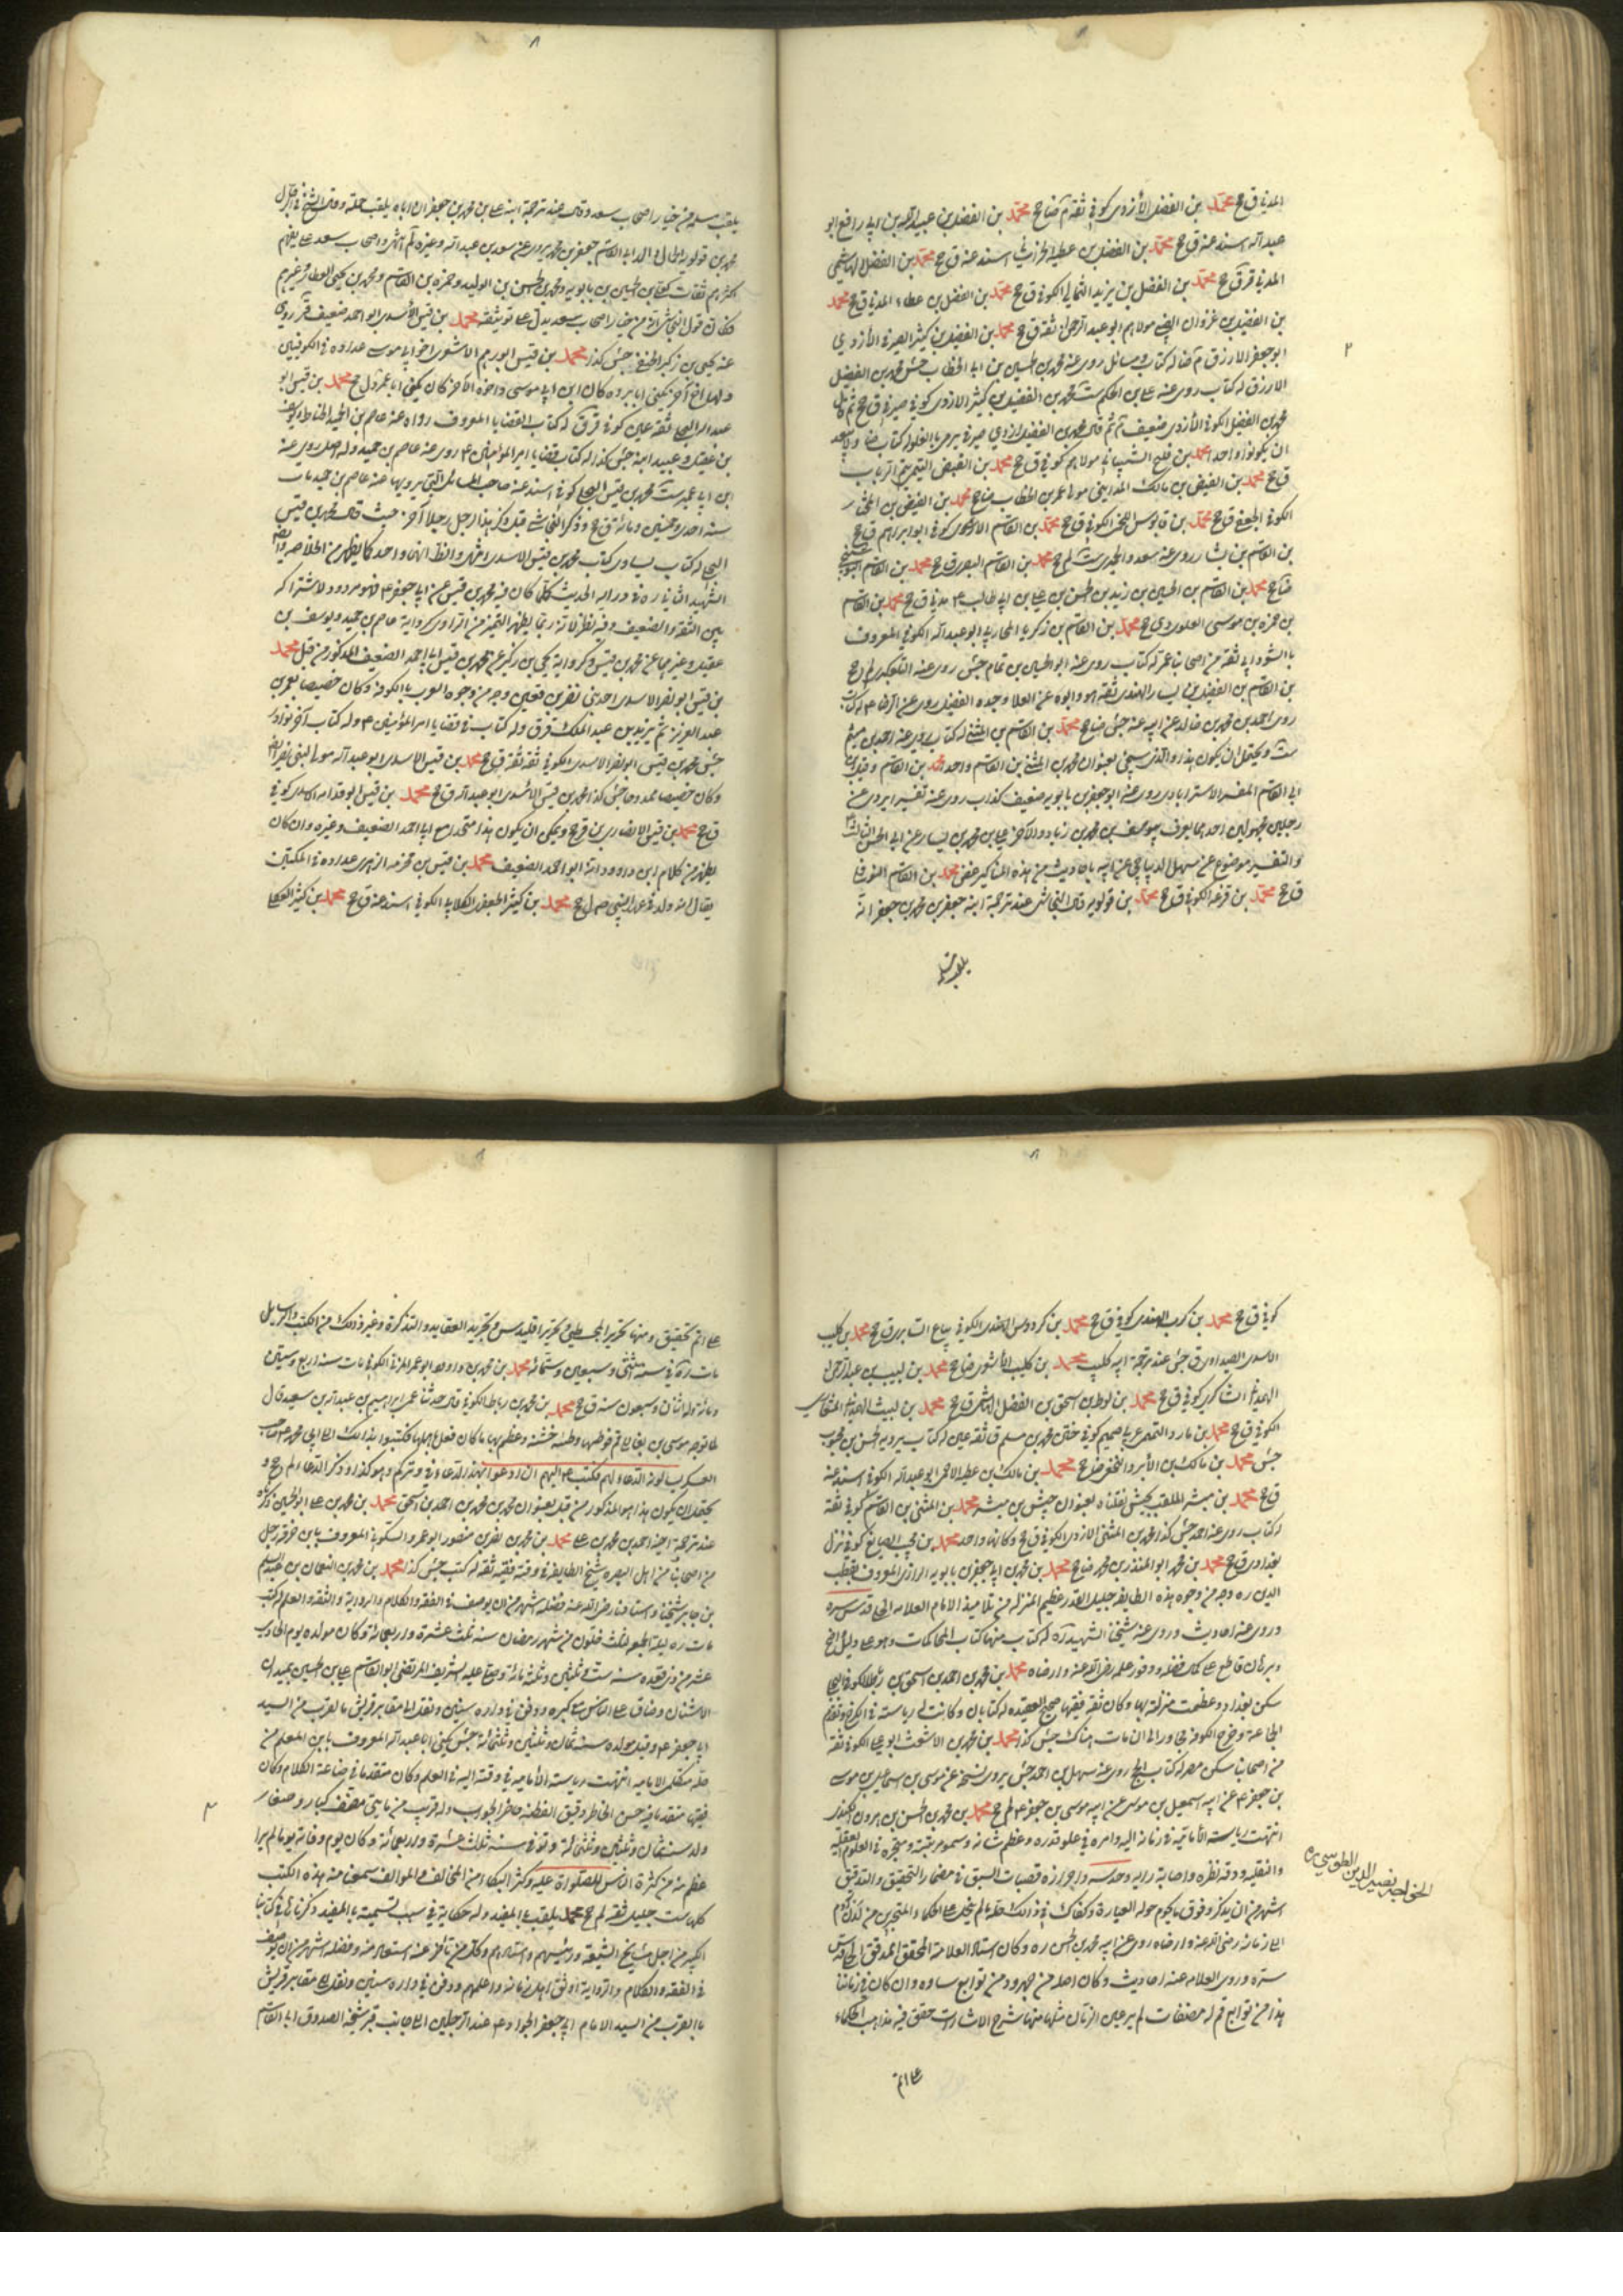 المدني ق ج محمد بن الفضل الأزدي كوفي ثقة م ضا ج محمد بن الفضل بن عبيد الله بن ابي رافع ابو
عبد الله اسند عنه ق ج محمد بن الفضل بن عطية الخراساني اسند عنه ق ج محمد بن الفضل الهاشمي
المدني ق ر ق ج محمد بن الفضل بن يزيد الثمالي الكوفي ق ج محمد بن الفضل بن عطاء المدني ق ج محمد
بن الفضيل بن غزوان الضبي مولاهم ابو عبد الرحمن ثقة ق ج محمد بن الفضيل بن كثير الصيرفي الأزدي
ابو جعفر الازرق م ضا له كتاب ومسائل روى عنه محمد بن الحسين بن ابي الخطاب جش محمد بن الفضيل
الازرق له كتاب روى عنه علي بن الحكم ست محمد بن الفضيل بن كثير الازدي كوفي صيرفي ق ج ثم قال
محمد بن الفضيل الكوفي الأزدي ضعيف م ثم قال محمد بن الفضيل ازدي صيرفي يرمى بالغلو له كتاب ضا
ان يكونوا واحدا محمد بن فليح الشيباني مولاهم كوفي ق ج محمد بن الفيض التيمي تيم الرباب
ق ج محمد بن الفيض بن مالك المدايني مولى عمر بن الخطاب ضا ج محمد بن الفيض بن المختار
الكوفي الجعفي ق ج محمد بن قابوس اللخمي الكوفي ق ج محمد بن القاسم الاسدي كوفي ابو ابراهيم ق ج
بن القاسم بن بشار روى عنه سعد والحميري لم ج محمد بن القاسم البصري ق ج محمد بن القاسم
ضا ج محمد بن القاسم بن الحسين بن زيد بن الحسن بن علي بن ابي طالب ع مدني ق ج محمد بن القاسم
بن حمزة بن موسى العلوي دي ج محمد بن القاسم بن زكريا المحاربي ابو عبد الله الكوفي المعروف
بالسوداني ثقة من اصحابنا عمر له كتاب روى عنه ابو الحسين بن تمام جش روى عنه التلعكبري لم ج
بن القاسم بن الفضيل بن يسار النهدي ثقة هو وابوه عمه العلا وجده الفضيل روى عن الرضا ع له كتاب
روى احمد بن محمد بن خالد عن ابيه عنه جش ضا ج محمد بن القاسم بن المثنى له كتاب روى عنه احمد بن ميثم
ست ويحتمل ان يكون هذا والذي سيجئ بعنوان محمد بن المثنى بن القاسم واحد محمد بن القاسم وقيل ابن
ابي القاسم المفسر الاسترابادي روى عنه ابو جعفر بن بابويه ضعيف كذاب روى عنه تفسيرا يرويه عن
رجلين مجهولين احدهما يعرف بيوسف بن محمد بن زياد والآخر علي بن محمد بن يسار عن ابي الحسن الثالث ع
والتفسير موضوع عن سهل الديباجي عن ابيه باحاديث من هذه المناكير غض محمد بن القاسم النوفلي
ق ج محمد بن قزعة الكوفي ق ج محمد بن قولويه قال النجاشي عند ترجمة ابنه جعفر بن محمد بن جعفر انه
يلقب مسلمة
يلقب مسلمة من خيار اصحاب سعد وقال عند ترجمة ابنه علي بن محمد بن جعفر ان اباه يلقب مملة وقال الشيخ في الرجال
محمد بن قولويه الجمال والد ابي القاسم جعفر بن محمد يروى عن سعد بن عبد الله وغيره لم انتهى واصحاب سعد على ما يفهم
اكثرهم ثقات كعلي بن الحسين بن بابويه ومحمد بن الحسن بن الوليد وحمزة بن القاسم ومحمد بن يحيى العطار وغيرهم
فكان قول النجاشي انه من خيار اصحاب سعد يدل على توثيقه محمد بن قيس الأسدي ابو احمد ضعيف قر روى
عنه يحيى بن زكريا الحنفي جش كذا محمد بن قيس ابو رهم الاشعري اخو ابي موسى عداده في الكوفيين
ولهما اخ آخر يكنى ابا بردة كان ابن ابي موسى واخوه الآخر كان يكنى ابا عمرو ل ج محمد بن قيس ابو
عبد الله البجلي ثقة عين كوفي ق ر ق له كتاب القضايا المعروف رواه عنه عاصم بن الحميد الحناط ويوسف
بن عقيل وعبيد ابنه جش كذا له كتاب قضايا امير المؤمنين ع روى عنه عاصم بن حميد وله اصل روى عنه
ابن ابي عمير ست محمد بن قيس البجلي كوفي اسند عنه صاحب المسائل التي يرويها عنه عاصم بن حميد مات
سنة احدى وخمسين ومائة ق ج وذكر النجاشي قبل ذكر هذا الرجل رجلا آخر حيث قال محمد بن قيس
البجلي له كتاب يساوي كتاب محمد بن قيس الاسدي انتهى والظ انهما واحد كما يظهر من الخلاصة
الشهيد الثاني ره في دراية الحديث كلما كان فيه محمد بن قيس عن ابي جعفر ع فهو مردود لاشتراكه
بين الثقة والضعيف وفيه نظر لانه ربما يظهر التميز من الراوي كرواية عاصم بن حميد ويوسف بن
عقيل وغيرهما عن محمد بن قيس وكرواية يحيى بن زكريا عن محمد بن قيس ابا احمد الضعيف المذكور من قبل محمد
بن قيس ابو نصر الاسدي احد بني نصر بن قعين وجه من وجوه العرب بالكوفة وكان خصيصا بعمر بن
عبد العزيز ثم يزيد بن عبد الملك ق ر ق وله كتاب في قضايا امير المؤمنين ع وله كتاب آخر نوادر
جش محمد بن قيس ابو نصر الاسدي الكوفي ثقة ثقة ق ج محمد بن قيس الاسدي ابو عبد الله مولى لبني نصر
وكان خصيصا ممدوحا جش كذا محمد بن قيس الاسدي ابو عبد الله ق ج محمد بن قيس ابو قدامة الاسدي كوفي
ق ج محمد بن قيس الانصاري ين ق ر ج ويمكن ان يكون هذا متحد مع ابي احمد الضعيف وغيره وان كان
يظهر من كلام ابن داوود انه ابو احمد الضعيف محمد بن قيس بن مخرمة الزهري عداده في المكيين
يقال انه ولد في عهد النبي ص ل ج محمد بن كثير الجعفي الكلابي الكوفي اسند عنه ق ج محمد بن كثير العجلي
كوفي ق ج محمد بن كرب الهندي كوفي ق ج محمد بن كردوس الهندي الكوفي بياع السابري ق ج محمد بن كليب
الاسدي الصيداوي ق جش عند ترجمة ابيه كليب محمد بن كليب الأشعري ضا ج محمد بن لبيب بن عبد الرحمن
الهمداني الشاكري كوفي ق ج محمد بن لوط بن اسحق بن الفضل الهاشمي ق ج محمد بن ليث الهمداني المشاعري
الكوفي ق ج محمد بن مارد التميمي عربي صميم كوفي ختن محمد بن مسلم ق ثقة عين له كتاب يرويه الحسن بن محبوب
جش محمد بن مالك بن الأبرد النخعي ضا ج محمد بن مالك بن عطية الاحمسي ابو عبد الله الكوفي اسند عنه
ق ج محمد بن مبشر الملقب بحبيش نقلناه بعنوان حبيش بن مبشر محمد بن المثنى بن القاسم كوفي ثقة
له كتاب روى عنه احمد جش كذا محمد بن المثنى الازدي الكوفي ق ج وكانهما واحد محمد بن مجيب الصايغ كوفي نزل
بغداد ق ج محمد بن محمد ابو المنذر بن محمد ضا ج محمد بن محمد بن ابي جعفر بن بابويه الرازي المعروف بقطب
الدين ره وجه من وجوه هذه الطايفة جليل القدر عظيم المنزلة من تلاميذ الامام العلامة الحلي قدس سره
وروى عنه احاديث وروى عنه شيخنا الشهيد ره له كتاب منها كتاب المحاكمات وهو على دليل واضح
وبرهان قاطع على كمال فضله ووفور علمه رضي الله عنه وارضاه محمد بن محمد بن احمد بن اسحق بن رباط الكوفي البجلي
سكن بغداد وعظمت منزلته بها وكان ثقة فقيها صحيح العقيدة له كتابان وكانت له رياسة في الكرخ وتقدم
الجماعة وخرج الكوفة مجاورا الى ان مات هناك جش كذا محمد بن محمد بن الاشعث ابو علي الكوفي ثقة
من اصحابنا سكن مصر له كتاب الحج روى عنه سهل بن احمد جش يروي نسخة عن موسى بن اسماعيل بن موسى
بن جعفر ع عن ابيه اسمعيل بن موسى عن ابيه موسى بن جعفر ع لم ج محمد بن محمد بن الحسن بن هرون الكندي
انتهت رياسة الأمامية في زمانه اليه وامره في علو قدره وعظم شانه وسمو مرتبته وتبحره في العلوم العقلية
والنقلية ودقة نظره واصابة رايه وحدسه واحرازه قصبات السبق في مضمار التحقيق والتدقيق
اشهر من ان يذكر وفوق ما يحوم حوله العبارة وكفاك في ذلك حله ما لم ينحل على الحكماء المتبحرين من لدن آدم
الى زمانه رضي الله عنه وارضاه روى عن ابيه محمد بن الحسن ره وكان استاد العلامة المحقق المدقق الحلي قدس
سره وروى العلامة عنه احاديث وكان اصله من جهرود من توابع ساوه وان كان في زماننا
هذا من توابع قم له مصنفات لم ير عين الزمان مثلها منها شرح الاشارات حقق فيه مذاهب الحكماء
الخواجه نصير الدين الطوسي ره
على اتم
على اتم تحقيق ومنها تحرير المجسطي وتحرير اقليدس وتجريد العقايد والتذكرة وغير ذلك من الكتب والرسايل
مات ره في سنة اثنتي وسبعين وستمائة محمد بن محمد بن داود ابو عمر المزني الكوفي مات سنة اربع وستين
ومائة وله اثنان وسبعون سنة ق ج محمد بن محمد بن رباط الكوفي قال حدثنا عمر ابراهيم بن عبد الله بن سعيد قال
لما توجه موسى بن بغا الى قم فوطئها وطئة خشنة وعظم بها ما كان فعل باهلها فكتبوا بذلك الى ابي محمد ع صاحب
العسكر يسالونه الدعاء لهم فكتب ع اليهم ان ادعوا بهذا الدعاء في وتركم وهو كذا وذكر الدعاء لم ج و
يحتمل ان يكون هذا هو المذكور من قبل بعنوان محمد بن محمد بن احمد بن اسحق محمد بن محمد بن علي ابو الحسين ذكره
عند ترجمة اخيه احمد بن محمد بن علي محمد بن محمد بن نصر بن منصور ابو عمرو السكوني المعروف بابن خرقة رجل
من اصحابنا من اهل البصرة شيخ الطايفة في وقته فقيه ثقة له كتب جش كذا محمد بن محمد بن النعمان بن عبد السلم
بن جابر شيخنا واستاذنا رض الله عنه فضله اشهر من ان يوصف في الفقه والكلام والرواية والثقة والعلم له كتب
مات ره ليلة الجمعة لثلث خلون من شهر رمضان سنة ثلث عشرة واربعمائة وكان مولده يوم الحادي
عشر من ذي قعدة سنة ست وثلثين وثلثمائة وصلى عليه الشريف المرتضى ابو القاسم علي بن الحسين بميدان
الاشنان وضاق على الناس مع كبره ودفن في داره سنين ونقل الى مقابر قريش بالقرب من السيد
ابي جعفر ع وقيل مولده سنة ثمان وثلثين وثلثمائة جش يكنى ابا عبد الله المعروف بابن المعلم من
جملة متكلمي الامامية انتهت رياسة الأمامية في وقته اليه في العلم وكان متقدما في صناعة الكلام وكان
فقيها متقدما فيه حسن الخاطر دقيق الفطنة حاضر الجواب وله قريب من مايتي مصنف كبار وصغار
ولد سنة ثمان وثلثين وثلثمائة وتوفي سنة ثلث عشرة واربعمائة وكان يوم وفاته يوما لم ير
اعظم منه من كثرة الناس للصلوة عليه وكثرة البكاء من المخالف والموالف سمعنا منه هذه الكتب
كلها ست جليل ثقة لم ج محمد يلقب بالمفيد وله حكاية في سبب تسميته بالمفيد ذكرناها في كتابنا
الكبير من اجل مشايخ الشيعة ورئيسهم واستادهم وكل من تاخر عنه استفاد منه وفضله اشهر من ان يوصف
في الفقه والكلام والرواية اوثق اهل زمانه واعلمهم ودفن في داره سنين ونقل الى مقابر قريش
بالقرب من السيد الامام ابي جعفر الجواد ع عند الرجلين الى جانب قبر شيخه الصدوق ابا القاسم